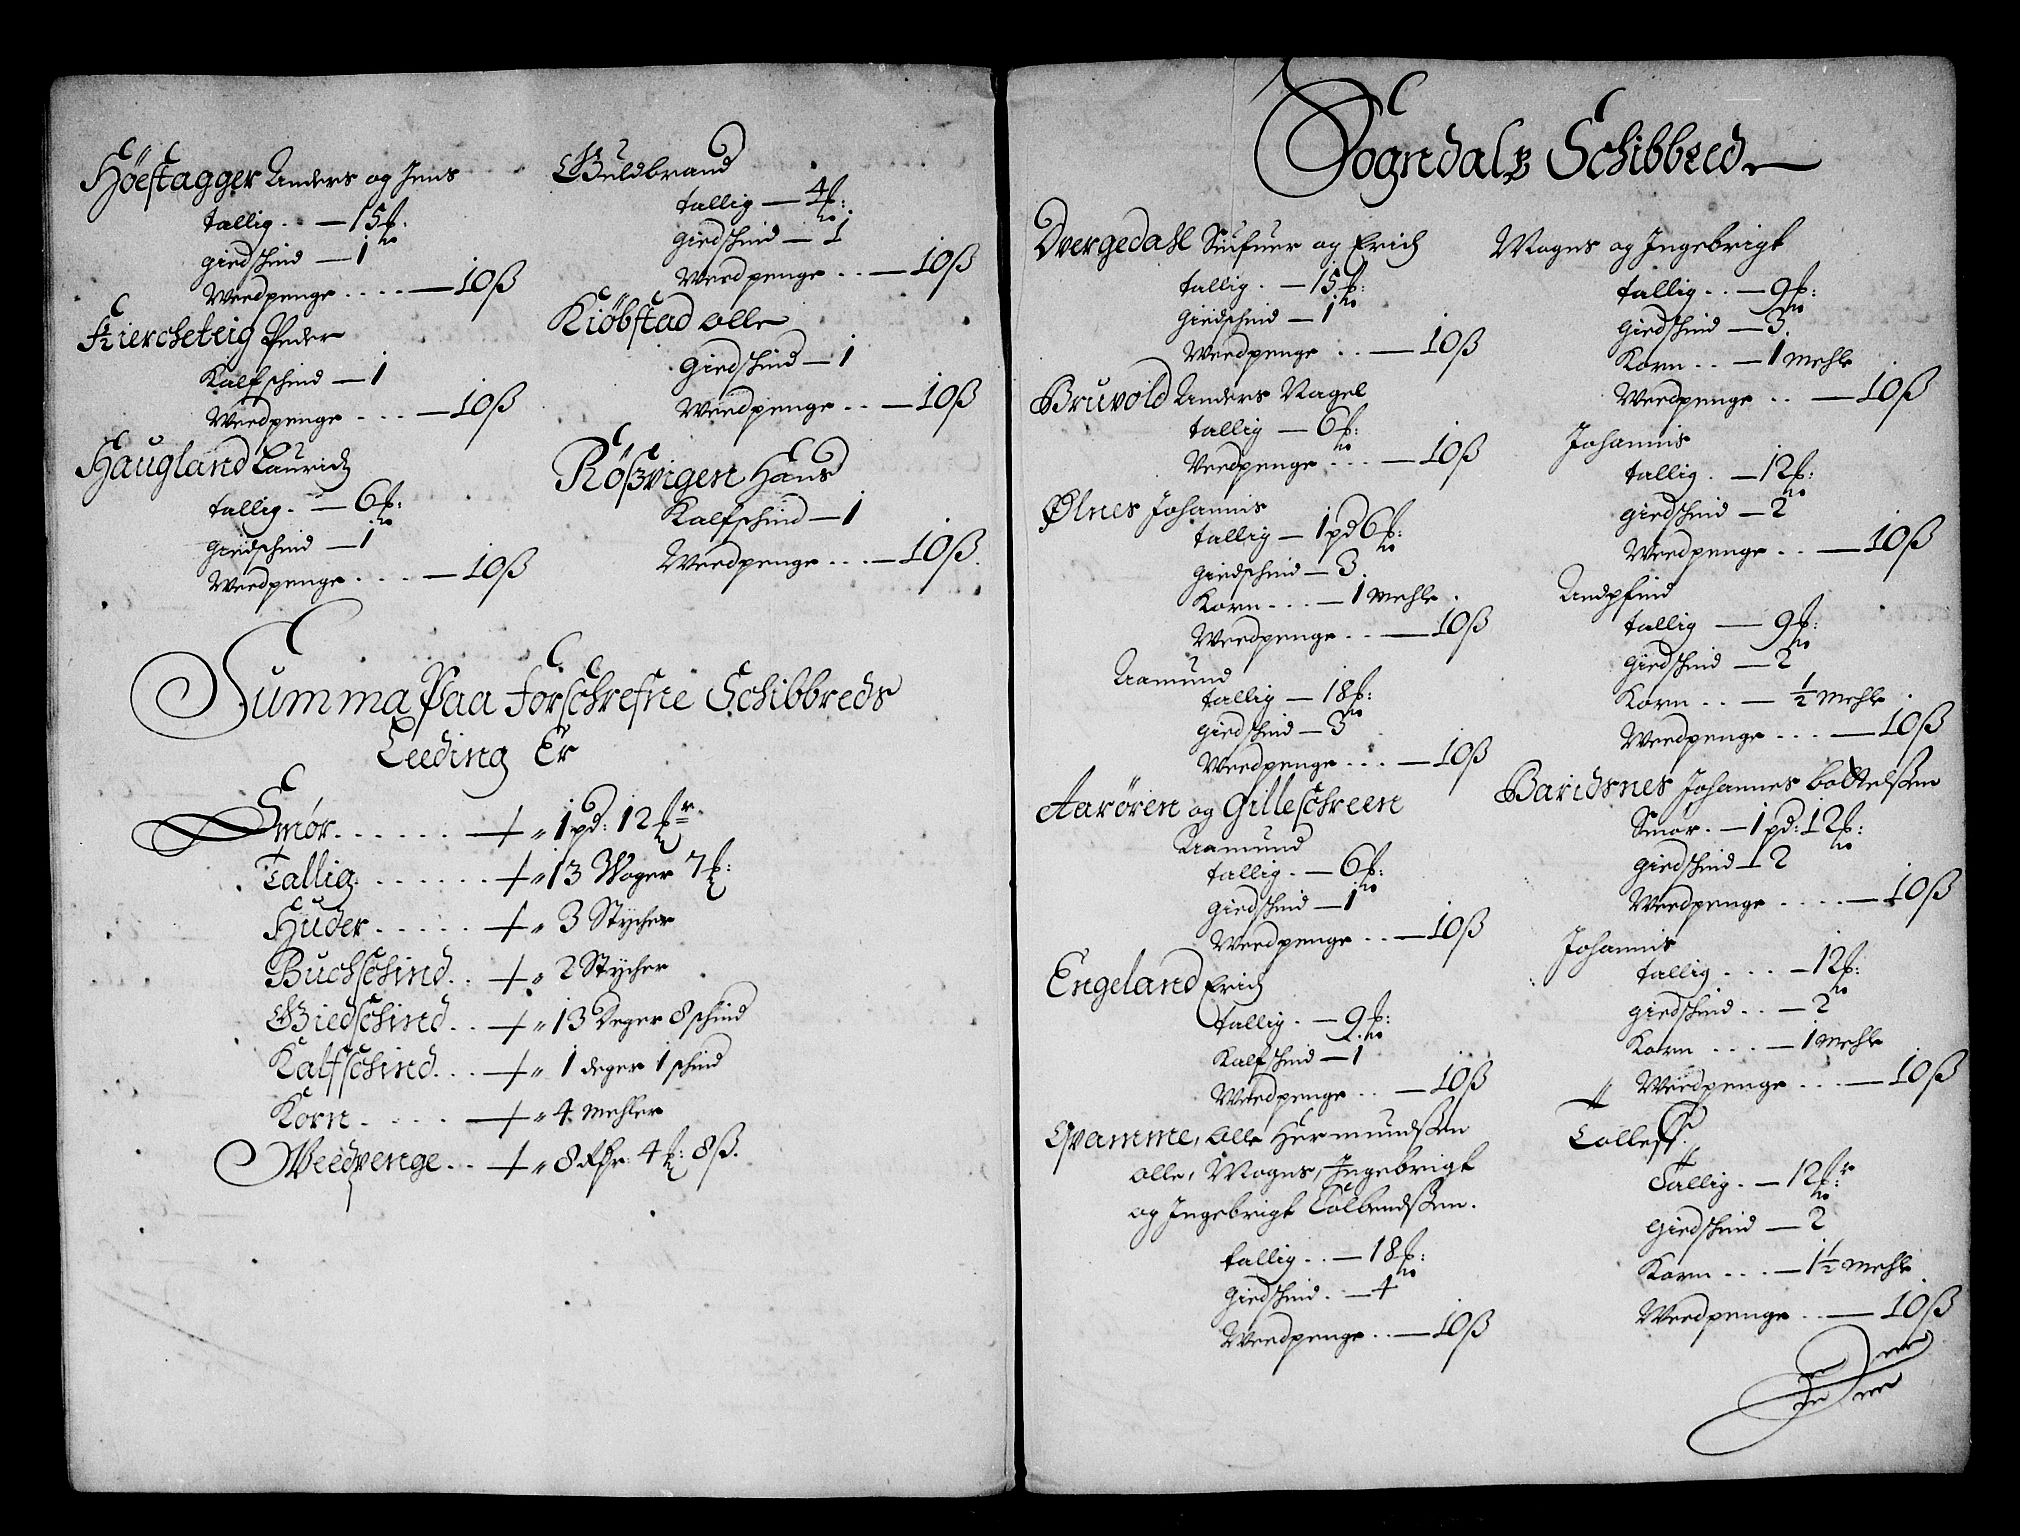 Höestagger Anders og Jens
tallig. — 15 ℔:
giedschind — 1
Weedpenge . . . . — 10ß
Kiercheteig Peder
Kalfschind — 1
Weedpenge . . . — 10ß
Haugland Lauridz
tallig. — 6 ℔:
giedschind — 1
Weedpenge . . . . — 10ß
Guldbrand
tallig — 4 ℔:
giedschind — 1
Weedpenge . . — 10ß
Kiöbstad olle
Giedschind — 1
Weedpenge . . — 10ß
Rößvigen Hans
Kalfschind — 1
Weedpenge . . . — 10ß.
Summa Paa Forschrefne Schibbreds
Leeding Er
Smør. . . . . . — 1 pd: 12 ℔r
Tallig. . . . . . 13 Woger 7 ℔:
Huder. . . . . 3 Stycher
Buchschind. . 2 Stycher
Giedschind. . 13 Deger 8 schind
Kalfschind. . . 1 deger 1 schind
Korn . . . . . 4 Mehler
Weedpenge. . . 8 Rdr: 4 ℔: 8ß.
Sogndals Schibbred.
Dvergedahl Siufuer og Erich
tallig. — 15 ℔:
Giedschind — 1
Weedpenge . . — 10ß
Bruvold Anders Nagel
tallig — 6 ℔:
Weedpenge . . . — 10ß
Ølnes Johannis
tallig — 1 pd 6 ℔:
Giedschind — 3.
Korn . . . — 1 Mehle.
Weedpenge . . — 10ß
Aamund
tallig — 18 ℔:
giedschind — 3
Weedpenge . . . — 10ß
Aarøren og Gilleschreen
Aamund
tallig. — 6 ℔:
giedschind — 1
Weedpenge . . — 10ß
Engeland Erich
tallig. — 9 ℔:
Kalfschind — 1
Weedpenge . . — 10ß
Qvamme, olle Hermundßen
olle, Mogns, Ingebrigt
og Ingebrigt Colbendßen.
tallig. . — 18 ℔:
Giedschind. — 4
Weedpenge . . — 10ß
Mogns og Ingebrigt
tallig. . — 9 ℔:
giedschind — 3.
Korn . . — 1 Mehle
Weedpenge . . — 10ß
Johannis
tallig. — 12 ℔:
giedschind — 2
Weedpenge . . — 10ß
Andpfind
tallig — 9 ℔:
giedschind — 2
Korn . . — ½ Mehle
Weedpenge . . . — 10ß
Baridsnes Johannes bottelßen
Smør. — 1 pd: 12 ℔:
giedschind — 2
Weedpenge . . . . — 10ß
Johannis
tallig. . . — 12 ℔:
giedschind . . — 2
Korn . . . — 1 Mehle
Weedpenge . . . — 10ß
Tolleff.
Tallig. — 12 ℔r
Giedschind — 2
Korn . . . — 1½ Mehle
Weedpenge . . — 10ß